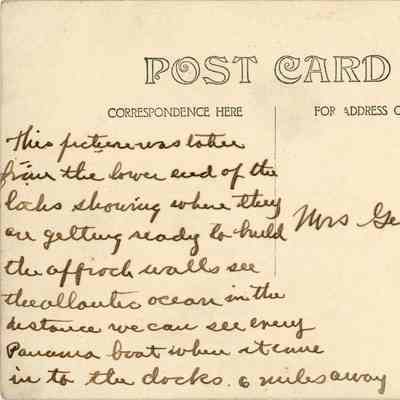 POST CARD
CORRESPONDENCE HERE
FOR ADDRESS O
This picture was taken
from the lower end of the
locks showing where they
are getting ready to build
the approch walls see
the atlantic ocean in the
distance we can see every
Panama boat when it came
in to the docks. 6 miles away
Mrs Ge